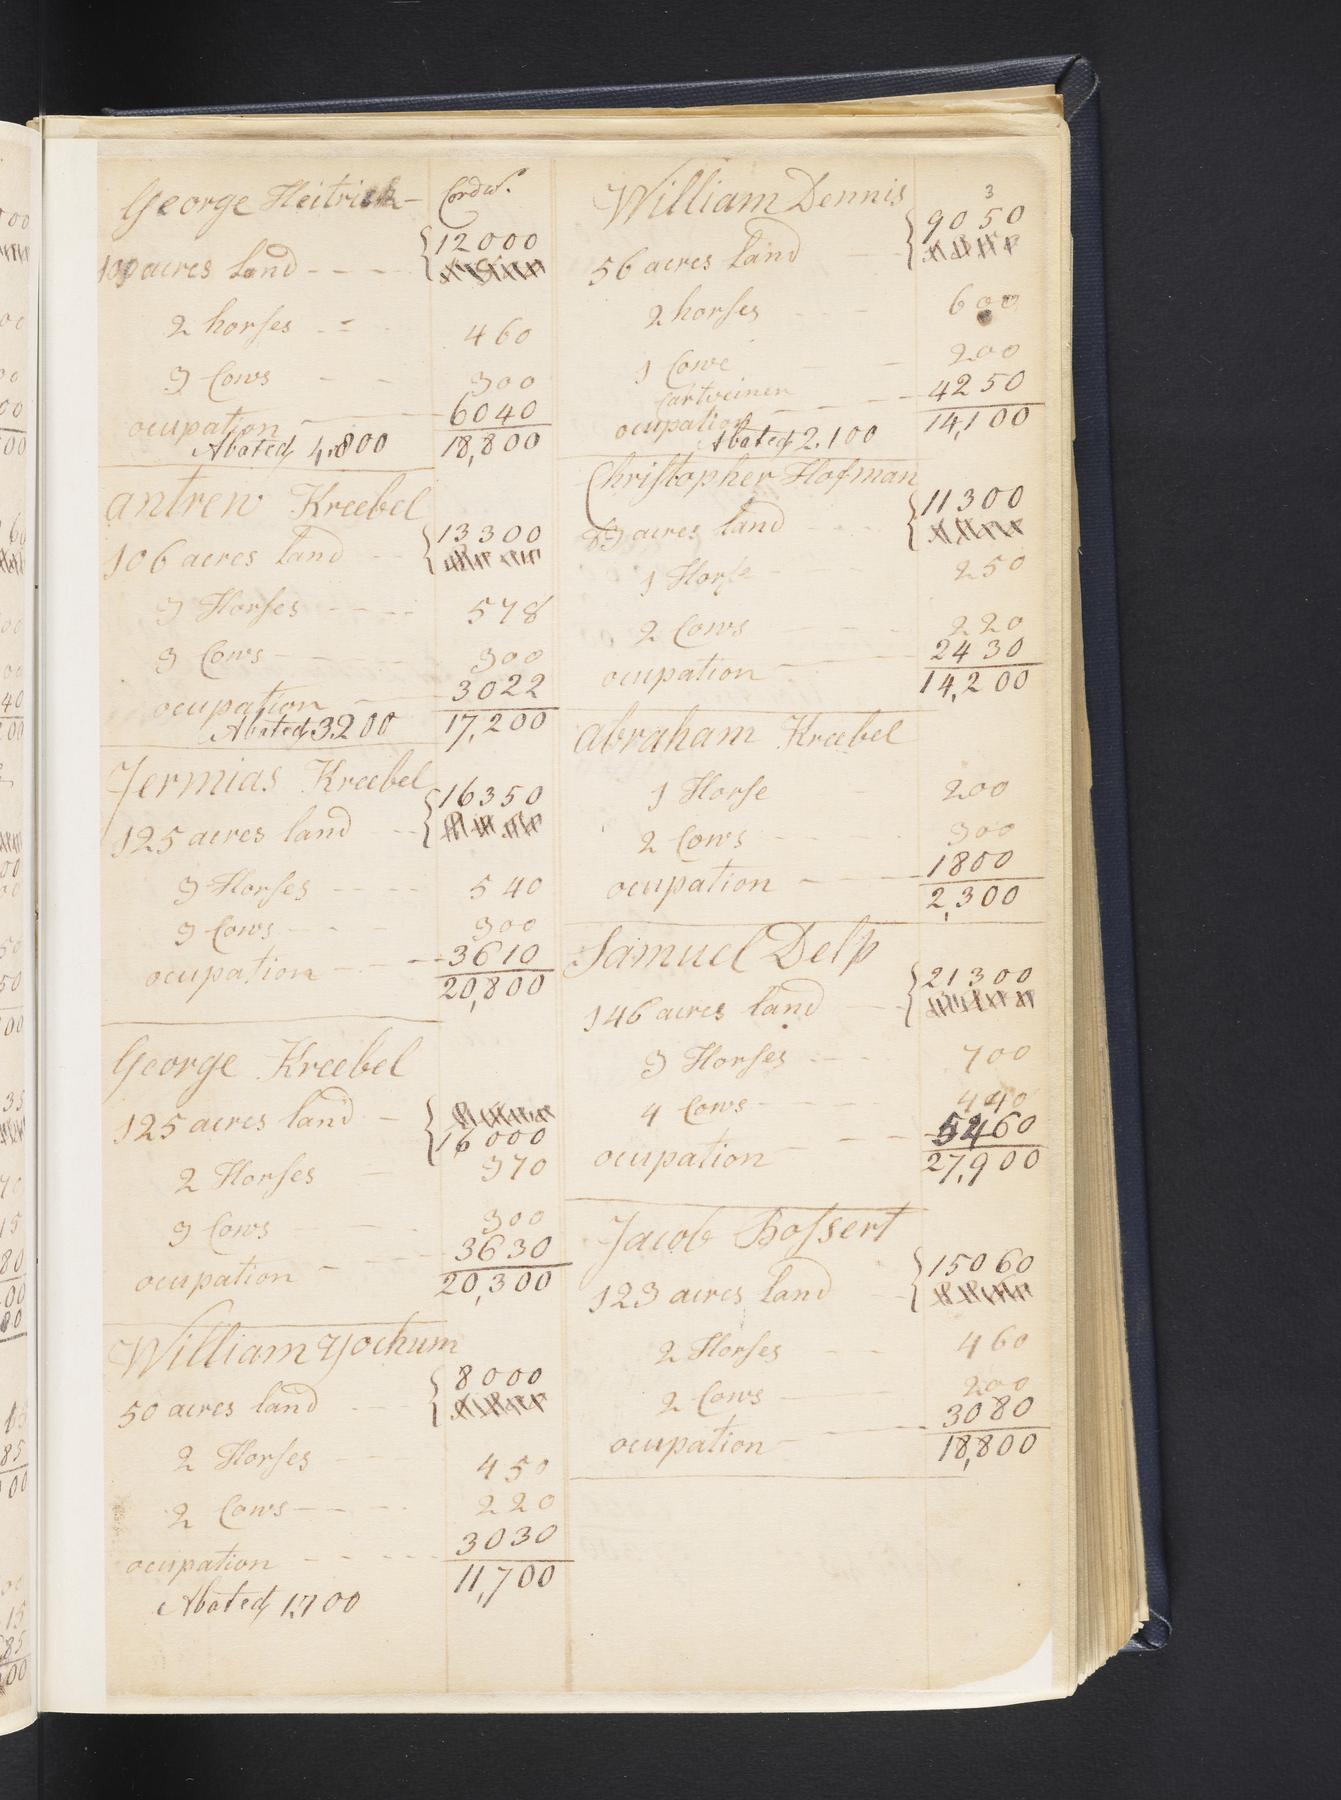 George Heitrick - Cordwr.
100 acres land - - - - { 12000
2 horses - - - 460
3 Cows - - 300
ocupation - - 6040
Abated 4,800 18,800
antrew Kreebel
106 acres land - - { 13300
3 Horses - - - - 578
3 Cows - - - - 300
ocupation - 3022
Abated 3200 17,200
Jermias Kreebel
125 acres land - - { 16350
3 Horses - - - - 540
3 Cows - - - 300
ocupation - - - 3610
20,800
George Kreebel
125 acres land - { 16000
2 Horses - 370
3 Cows - - - 300
ocupation - - - 3630
20,300
William Yochum
50 acres land - - - { 8000
2 Horses - - - 450
2 Cows - - - - 220
ocupation - - - - - 3030
Abated 1,700 11,700
3
William Dennis
56 acres land - - { 9050
2 horses - - - 600
1 Cowe - - 200
Cartweiner
ocupation - - - - 4250
Abated 2,100 14,100
Christopher Hofman
83 acres land - - - { 11300
1 Horse - - - 250
2 Cows - - - 220
ocupation - - - 2430
14,200
Abraham Kreebel
1 Horse - 200
2 Cows - - - 300
ocupation - - - - 1800
2,300
Samuel Delp
146 acres land - - { 21300
3 Horses - - - 700
4 Cows - - - - 440
ocupation - - - 5460
27,900
Jacob Bossert
123 acres land - - { 15060
2 Horses - - 460
2 Cows - - - 200
ocupation - - - - 3080
18,800